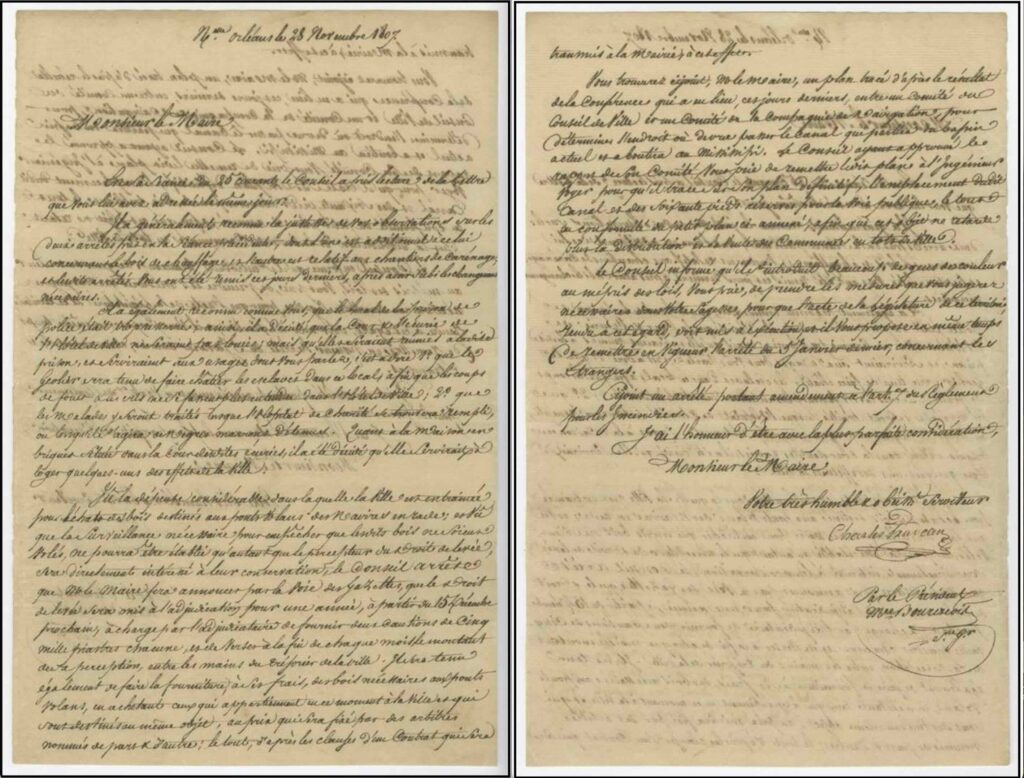 Nlle Orléans le 28 Novembre 1807
Monsieur le Maire,
Dans la Séance du 25 Courant le Conseil a pris lecture de la lettre
que Vous lui avez adressée le même jour.
Il a généralement reconnu la justesse de Vos observations sur les
deux arrêtés pris en la Séance précédente, dont l'un est additionnel à celui
concernant le bois de chauffage, et l'autre est relatif aux chantiers de Carénage,
et lesdits arrêtés Vous ont été remis ces jours derniers, après avoir subi les changemens
nécessaires.
Il a également reconnu comme Vous, que le local de la prison de
police était trop resserré; ainsi, il a décidé que la Cour & l'écurie de
l'hôtel de Ville ne seraient pas louées, mais qu'elles seraient réunies à la dite
prison, et serviraient aux usages dont Vous parlez, 1o que le
Geolier sera tenu de faire châtier les esclaves dans ce local, afin que les coups
de fouet & les cris ne soient plus entendus dans l'hôtel de Ville; 2o que
les Malades y seront traités lorsque l'hôpital de Charité se trouvera rempli,
ou lorsqu'il s'agira de Nègres marrons détenus. Quant à la Maison en
briques située dans la Cour desdites écuries, il a été décidé qu'elle Servirait à
loger quelques-uns des effets de la Ville.
Vu la dépense considérable dans laquelle la Ville est entrainée
pour l'achat des bois destinés aux ponts Volans des Navires en rade; et Vu
que la Surveillance nécessaire pour empêcher que lesdits bois ne Soient
Volés, ne pourra être établie qu'autant que le percepteur du Droit de levée,
sera directement intéressé à leur conservation, le Conseil arrête
que Mr. le Maire fera annoncer par la Voie des Gazettes, que le Droit
de levée Sera mis à l'adjudication pour une année, à partir du 15 Décembre
prochain, à charge par l'adjudicataire de fournir deux Cautions de Cinq
mille piastres chacune, et de Verser à la fin de chaque mois le montant
de la perception, entre les mains du trésorier de la Ville. Il sera tenu
également de faire la fourniture, à Ses frais, des bois nécessaires aux ponts
Volans, en achetant ceux qui appartiennent en ce moment à la Ville et qui
Sont destinés au même objet, au prix qui Sera fixé par des arbitres
nommés de part & d'autre; le tout, d'après les clauses d'un Contrat qui Sera
transmis à la Mairie, à cet effet.
Vous trouverez ci joint, Mr. le Maire, un plan tracé d'après le résultat
de la Conférence qui a eu lieu, ces jours derniers, entre un Comité du
Conseil de Ville et un Comité de la Compagnie de Navigation, pour
déterminer l'endroit où devra passer le Canal qui partira du bassin
actuel et aboutira au Mississipi. Le Conseil ayant approuvé le
rapport de Son Comité, Vous prie de remettre ledit plan à l'Ingénieur
pour qu'il trace Sur un plan définitif, l'emplacement dudit
Canal et des Soixante pieds réservés pour la Voie publique, le tout
en conformité du petit plan ci annexé; afin que cet objet ne retarde
plus la division et la Vente des Communes en lots de Ville.
Le Conseil informé qu'il s'introduit beaucoup de gens de couleur
au mépris des lois, Vous prie, de prendre les mesures que Vous jugerez
nécessaires dans Votre Sagesse, pour que l'acte de la Législature de ce territoire,
rendu à cet égard, soit mis à exécution; et il Vous propose en même temps
de remettre en Vigueur l'arrêté du 5 Janvier dernier, concernant les
Etrangers.
Ci joint un arrêté portant amendement à l'art. 7 du Réglement
pour les Incendies.
J'ai l'honneur d'être avec la plus parfaite considération,
Monsieur le Maire,
Votre très humble & obéist. Serviteur
Charles
Par le Président
Mce Bourgeois